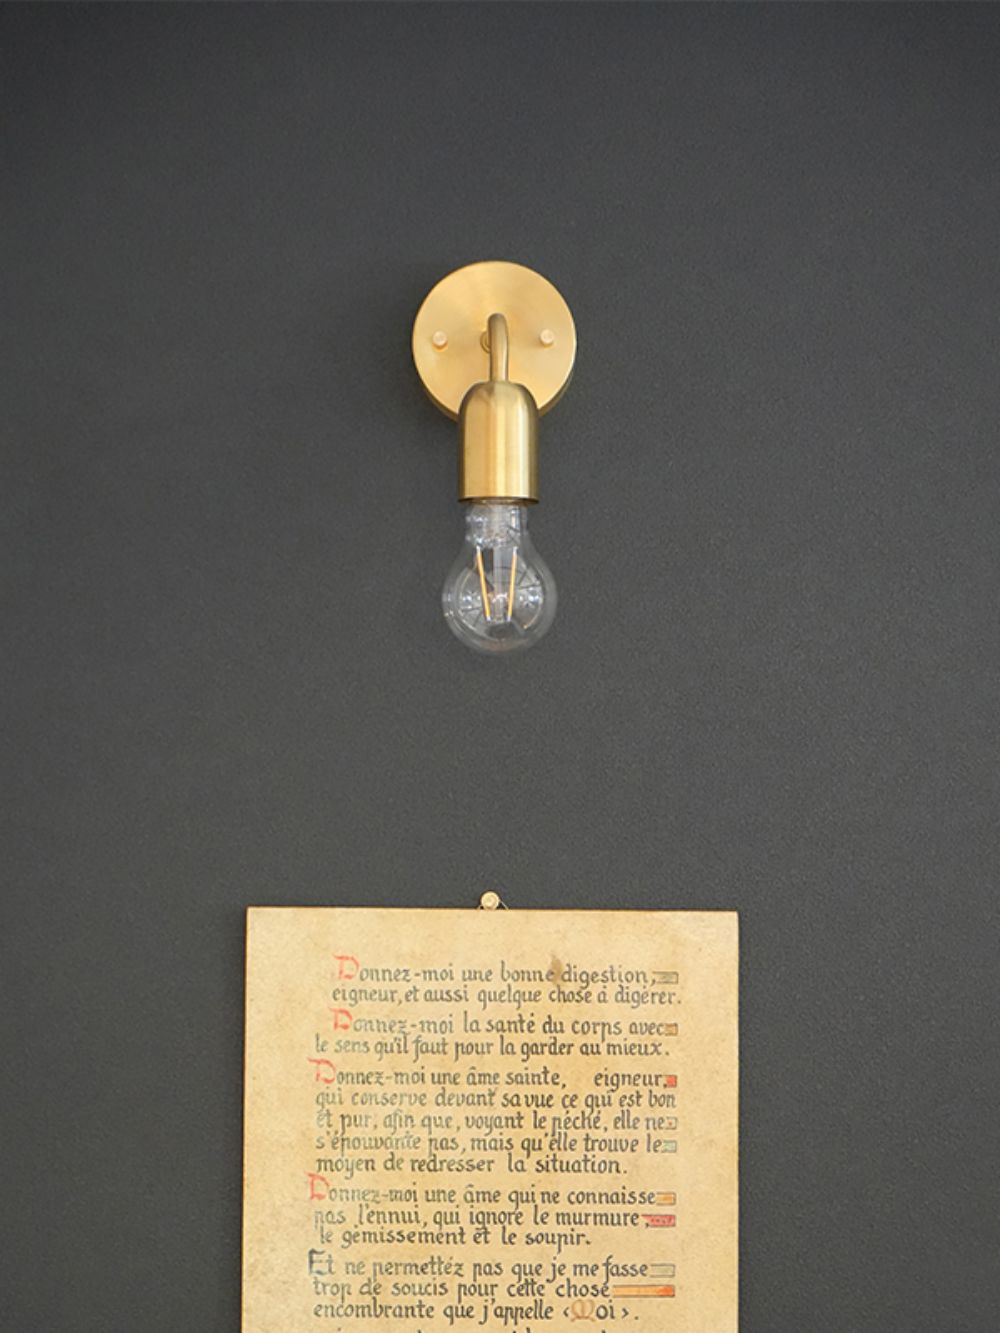 Donnez-moi une bonne digestion,
eigneur, et aussi quelque chose à digérer.
Donnez-moi la santé du corps avec
le sens qu'il faut pour la garder au mieux.
Donnez-moi une âme sainte, eigneur,
qui conserve devant sa vue ce qui est bon
et pur, afin que, voyant le péché, elle ne
s'épouvante pas, mais qu'elle trouve le
moyen de redresser la situation.
Donnez-moi une âme qui ne connaisse
pas l'ennui, qui ignore le murmure,
le gémissement et le soupir.
Et ne permettez pas que je me fasse
trop de soucis pour cette chose
encombrante que j'appelle ‹Moi›.